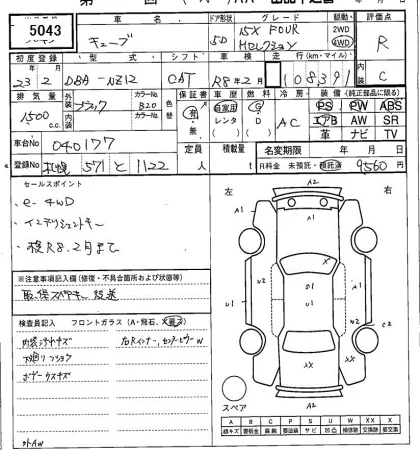 5043
車名
ドア形状
グレード
駆動
評価点
キューブ
5D
15X FOUR
Mセレクション
2WD
4WD
R
初度登録
型式
シフト
車検
走行(km・マイル)
内装
23年2月
DBA-NZ12
CAT
R8年2月
108391
C
排気量
外装
カラーNo.
色替
保証書
車歴
燃料
冷房
装備(純正部品に限る)
1500 c.c.
ブラック
B20
有・無
自家用
レンタ
G
D
AC
PS PW ABS
エアB AW SR
革 ナビ TV
車台No
040177
定員
人
積載量
t
名変期限
年 月 日
登録No
札幌 571 と 1122
R料金 未預託・預託済
9560 円
セールスポイント
e-4WD
インテリジェントキー
検R8.2月まで
※注意事項記入欄(修復・不具合箇所および状態等)
取、保、スペアキー 後送
検査員記入
フロントガラス(A・飛石、X要)
内装シートキズ
右Rインナー、センターピラーW
下廻りフックサ
ボデー小キズ
外AW
左
右
A2
A1
A1
U2
U1
U1
U2
W2
C2
XX
XX
A2
スペア
A B C P S U W X XX
線キズ 要板金 腐蝕 要塗装 サビ 凹凸 補修跡 交換跡 要交換